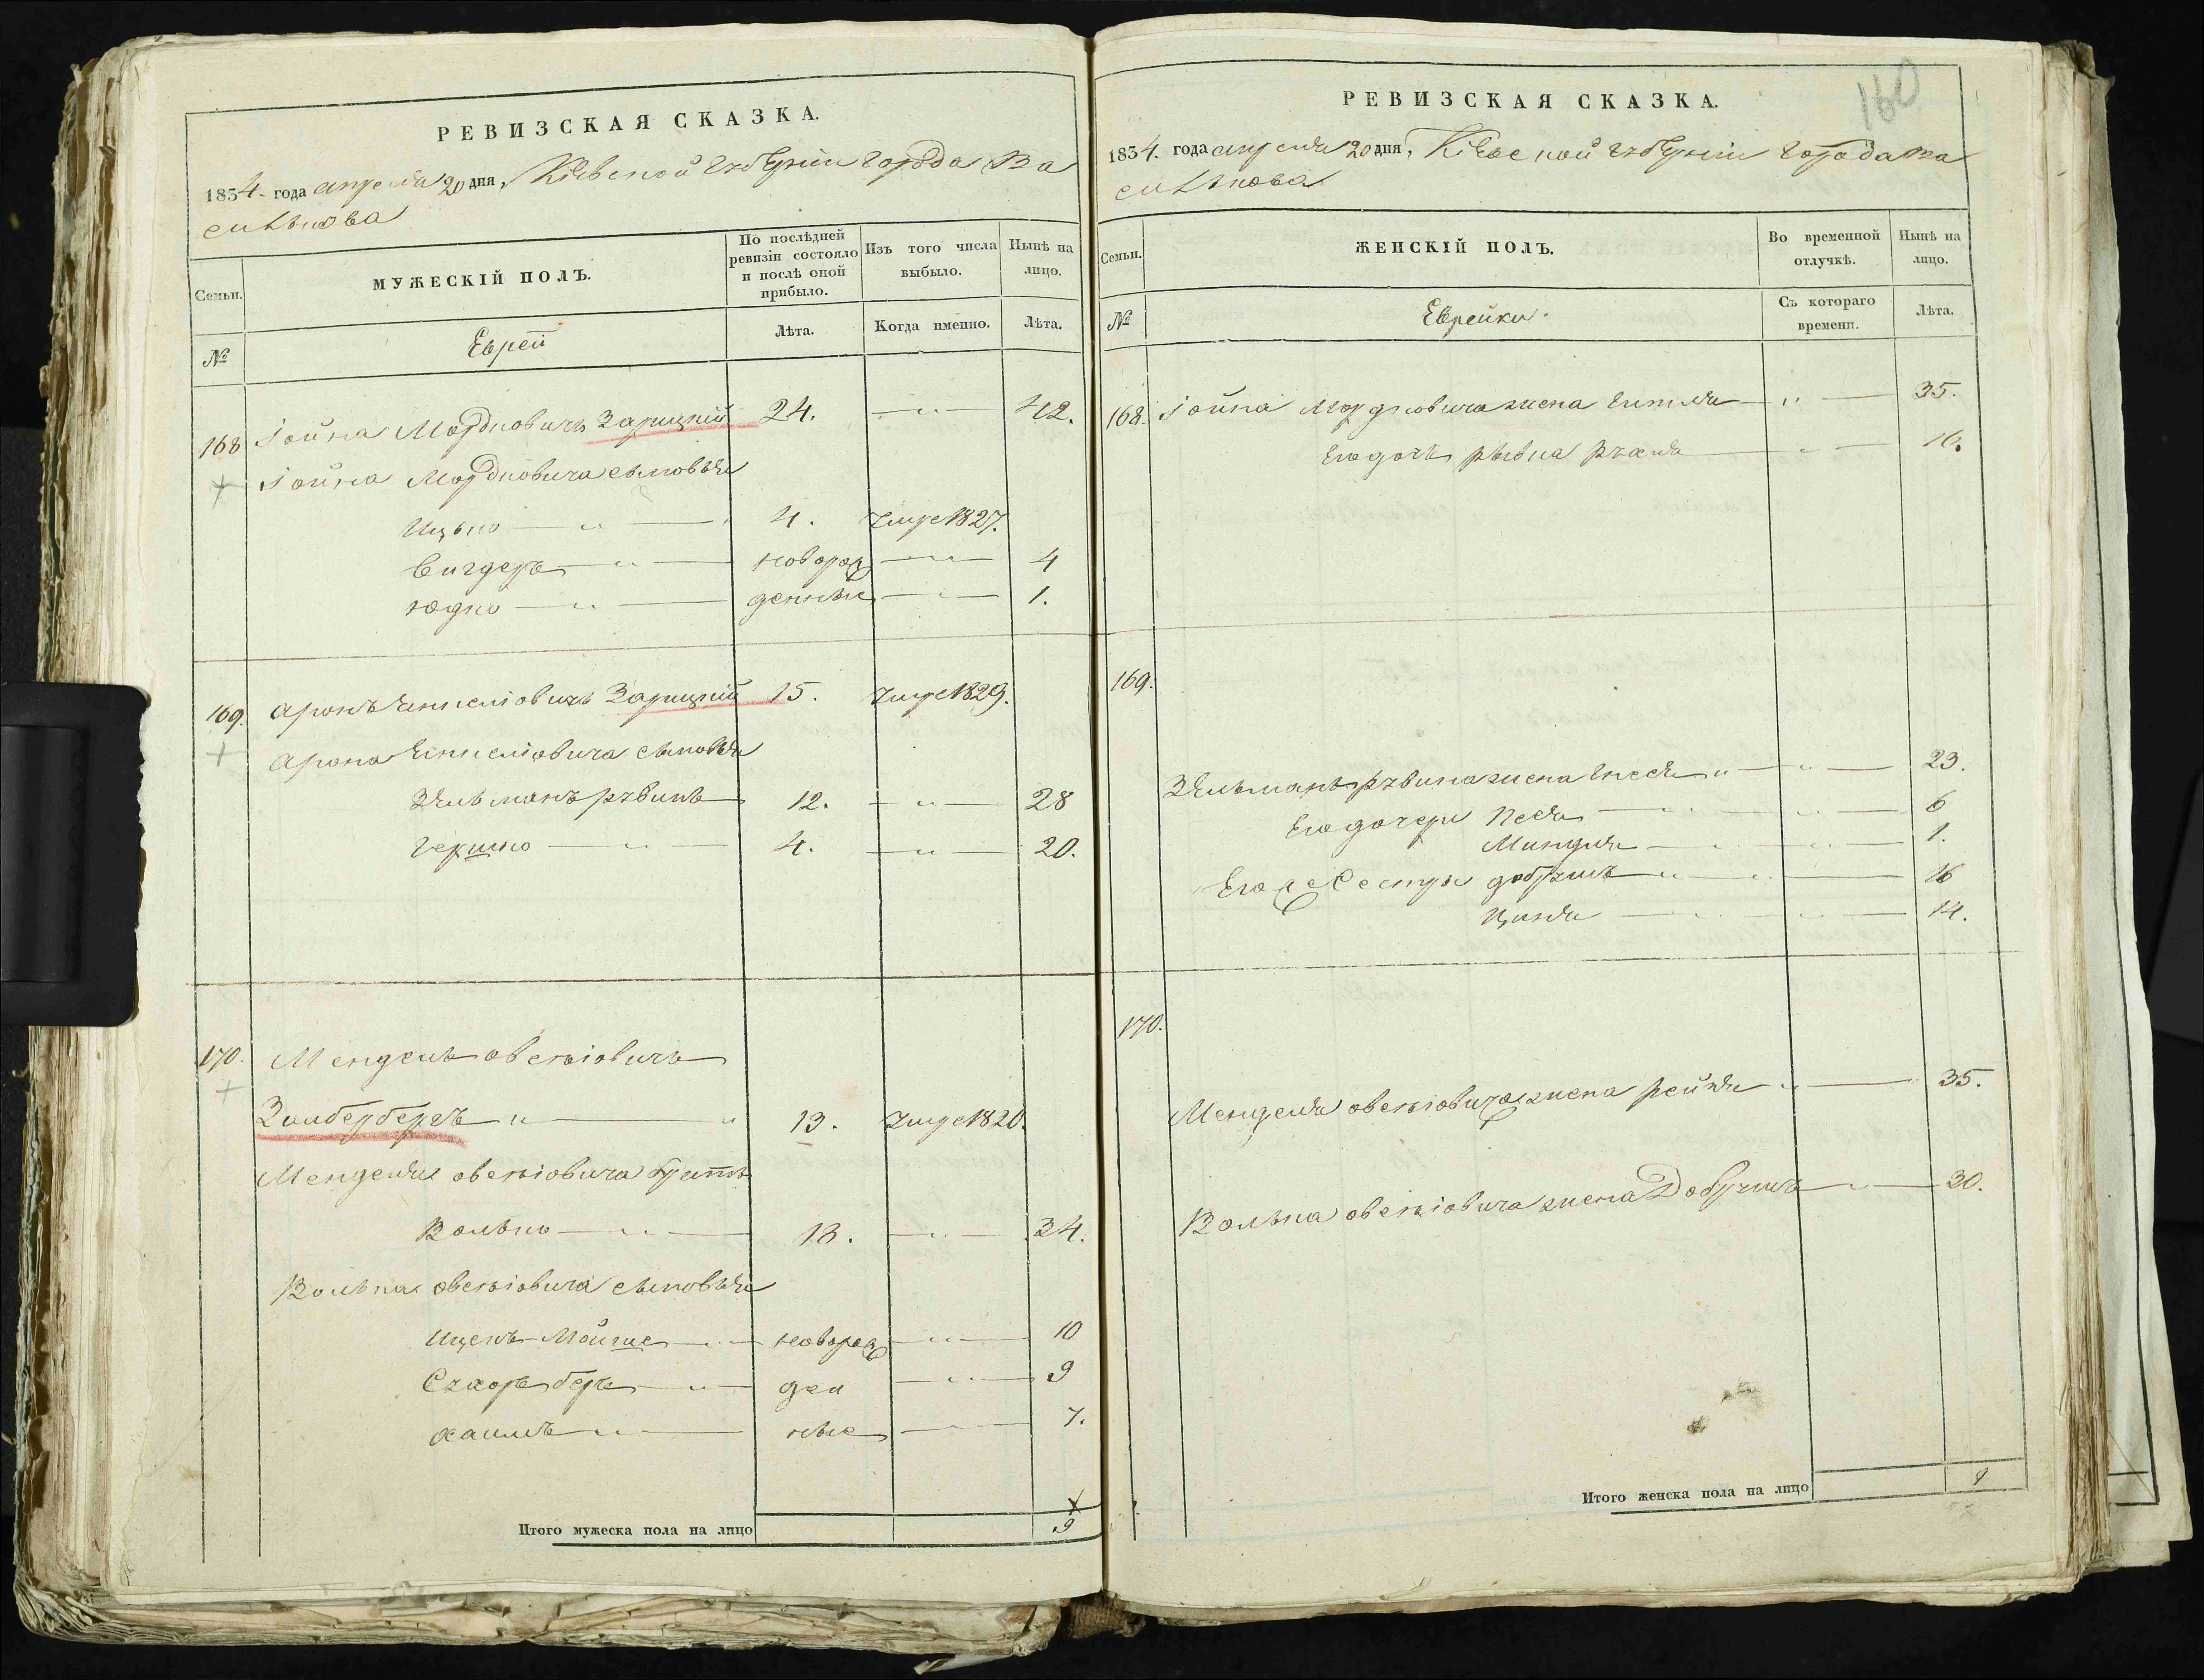 РЕВИЗСКАЯ СКАЗКА.
1834. года апреля 20 дня, Кіевской губерніи города Ва
силькова
Семьи.
МУЖЕСКІЙ ПОЛЪ.
По послѣдней ревизіи состояло и послѣ оной прибыло.
Изъ того числа выбыло.
Нынѣ на лицо.
№
Еврей
Лѣта.
Когда именно.
Лѣта.
168 Іойна Мордковичъ Зарицкій 24. — " — 42.
Іойна Мордковича сыновья
Ицько — " — 4. Умре 1827.
Вигдеръ — " — новорож — " — 4
Юдко — " — денные — " — 1.
169. Аронъ Зарицкій 15. Умре 1829.
Арона сыновья
Зельманъ рувинъ 12. — " — 28
Гершко — " — 4. — " — 20.
170. Мендель овсѣіовичъ
Зильбербергъ " — " 13. Умре 1820.
Менделя овсѣіовича братъ
Волько — " — 18. — " — 34.
Волька овсѣіовича сыновья
Ицекъ-Мойше — " — новорож — " — 10
Сухоръ беръ — " — ден — " — 9
хаимъ — " — ные — " — 7.
Итого мужеска пола на лицо
9
160
РЕВИЗСКАЯ СКАЗКА.
1834. года апреля 20 дня, Кіевской губерніи города Ва
силькова
Семьи.
ЖЕНСКІЙ ПОЛЪ.
Во временной отлучкѣ.
Нынѣ на лицо.
№
Еврейки.
Съ котораго времени.
Лѣта.
168. Іойна Мордковича жена Гитля — " — 35.
Его дочь рывка рухля — " — 16.
169.
Зельманъ рувина жена Гнеся " — " — 23.
Его дочери Песя — " — 6
Миндля — " — 1.
Его же Сестры добрышъ — " — 16
Ципя — " — 14.
170.
Менделя овсѣіовича жена рейзя — " — 35.
Волька овсѣіовича жена Добрышъ — " — 30.
Итого женска пола на лицо
9